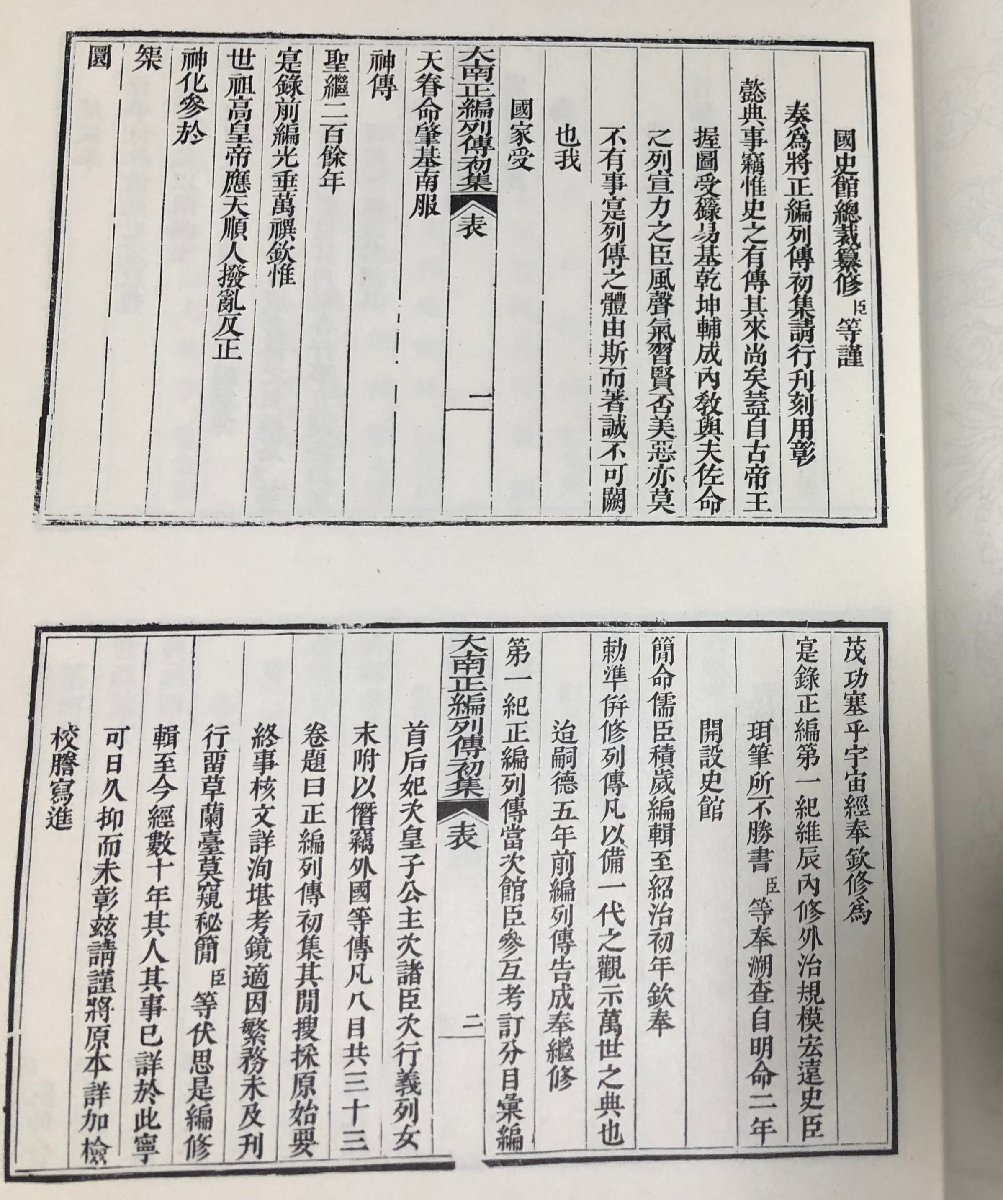 國史館總裁纂修臣等謹
奏爲將正編列傳初集請行刊刻用彰
懿典事竊惟史之有傳其來尚矣葢自古帝王
握圖受籙易基乾坤輔成內敎與夫佐命
之列宣力之臣風聲氣習賢否美惡亦莫
不有事寔列傳之體由斯而著誠不可闕
也我
國家受
大南正編列傳初集 表 一
天眷命肇基南服
神傳
聖繼二百餘年
寔錄前編光垂萬禩欽惟
世祖高皇帝應天順人撥亂反正
神化參於
榘
圜
茂功塞乎宇宙經奉欽修爲
寔錄正編第一紀維辰內修外治規模宏遠史臣
珥筆所不勝書臣等奉溯查自明命二年
開設史館
簡命儒臣積歲編輯至紹治初年欽奉
勅準併修列傳凡以備一代之觀示萬世之典也
迨嗣德五年前編列傳告成奉繼修
第一紀正編列傳當次館臣參互考訂分目彙編
大南正編列傳初集 表 二
首后妃次皇子公主次諸臣次行義列女
末附以僭竊外國等傳凡八目共三十三
卷題曰正編列傳初集其閒搜採原始要
終事核文詳洵堪考鏡適因繁務未及刊
行畱草蘭臺莫窺秘簡臣等伏思是編修
輯至今經數十年其人其事已詳於此寧
可日久抑而未彰玆請謹將原本詳加檢
校謄寫進